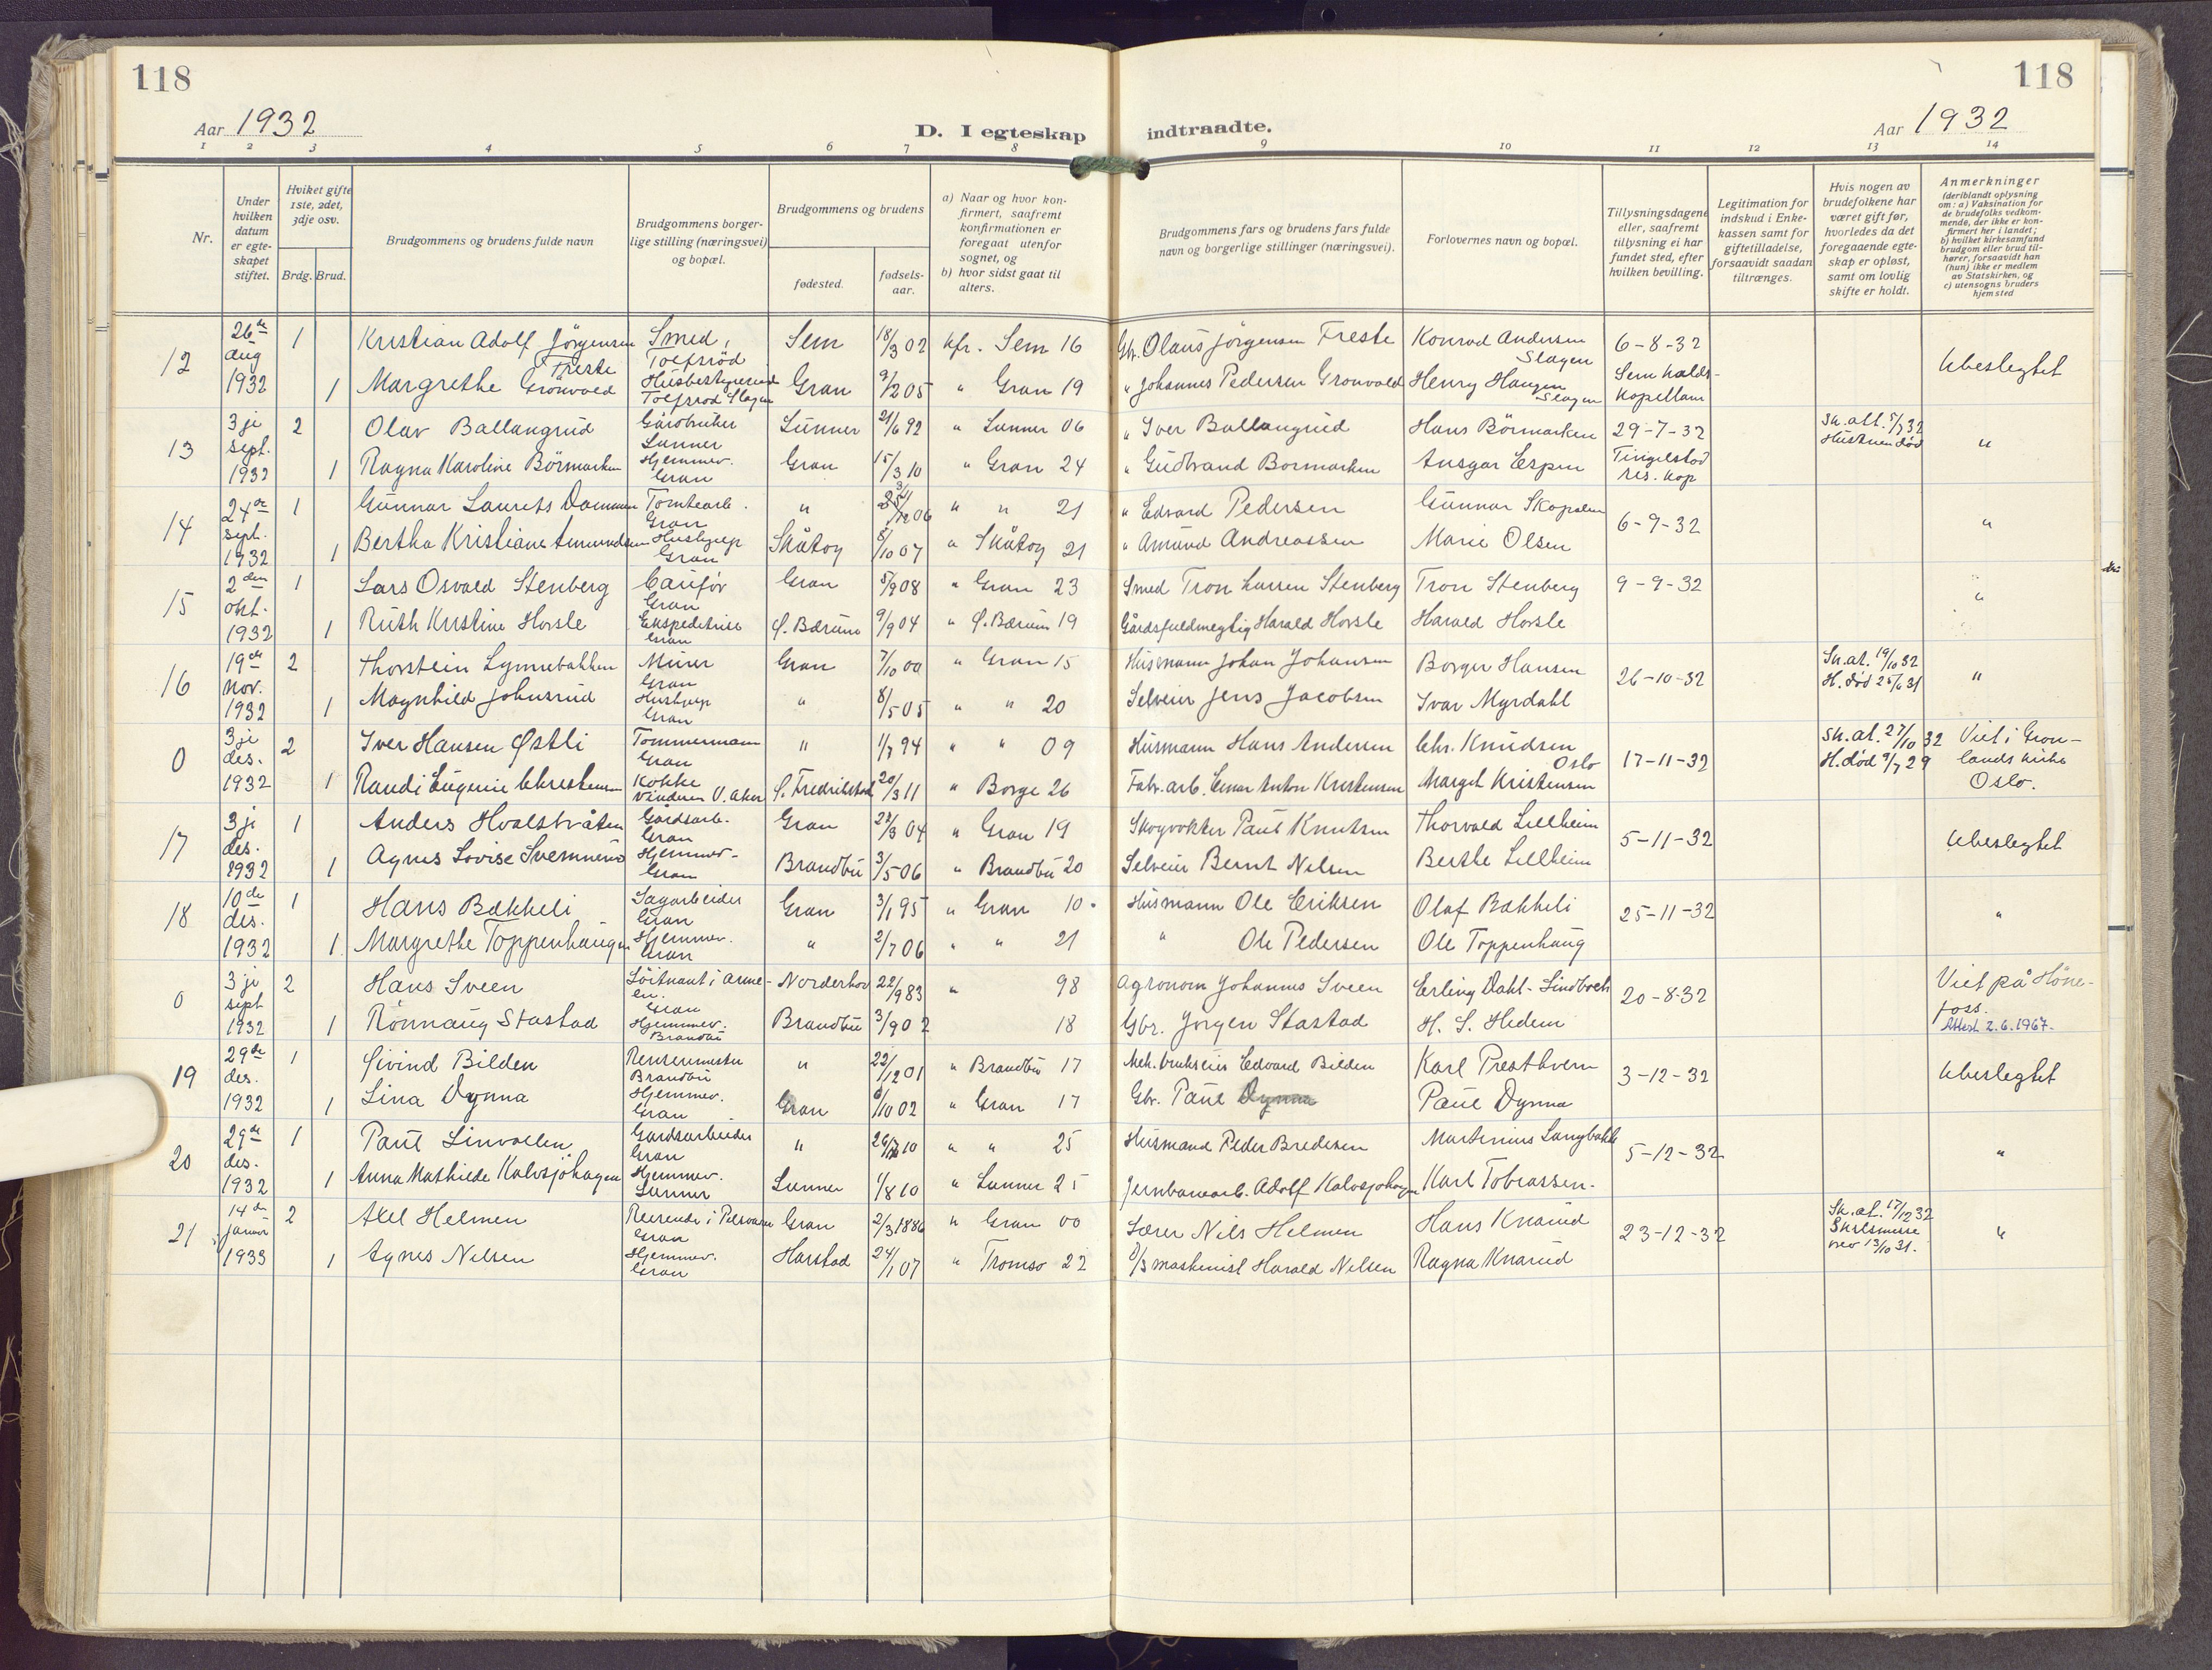 118
118
Aar 1932
D. I egteskap indtraadte.
Aar 1932
1 2 3 4 5 6 7 8 9 10 11 12 13 14
Nr.
Under hvilken datum er egteskapet stiftet.
Hviket gifte 1ste, 2det, 3dje osv.
Brdg. Brud.
Brudgommens og brudens fulde navn
Brudgommens borgerlige stilling (næringsvei) og bopæl.
Brudgommens og brudens
fødested.
fødselsaar.
a) Naar og hvor konfirmert, saafremt konfirmationen er foregaat utenfor sognet, og
b) hvor sidst gaat til alters.
Brudgommens fars og brudens fars fulde navn og borgerlige stillinger (næringsvei).
Forlovernes navn og bopæl.
Tillysningsdagene eller, saafremt tillysning ei har fundet sted, efter hvilken bevilling.
Legitimation for indskud i Enkekassen samt for giftetilladelse, forsaavidt saadan tiltrænges.
Hvis nogen av brudefolkene har været gift før, hvorledes da det foregaaende egteskap er opløst, samt om lovlig skifte er holdt.
Anmerkninger (deriblandt oplysning om: a) Vaksination for de brudefolks vedkommende, der ikke er konfirmert her i landet; b) hvilket kirkesamfund brudgom eller brud tilhører, forsaavidt han (hun) ikke er medlem av Statskirken, og c) utensogns bruders hjemsted
12 26de aug 1932 1 Kristian Adolf Jörgensen Freste Smed, Tolfsröd Sem 18/3 02 kfr. Sem 16 Gbr. Olaus Jörgensen Freste Konrad Andersen Slagen 6-8-32 Ubeslegtet
1 Margrethe Grönvold Husbestyrerinde Tolfsröd Slagen Gran 9/2 05 " Gran 19 " Johannes Pedersen Gronvold Henry Haugen Slagen Sem Kalds-Kapellan
13 3je sept. 1932 2 Olav Ballangrud Gårdbruker Lunner Lunner 21/6 92 " Lunner 06 " Iver Ballangrud Hans Börmarken 29-7-32 Sk. att. 5/7 32 Hustruen död "
1 Ragna Karoline Börmarken Hjemmev. Gran Gran 15/3 10 " Gran 24 " Gudbrand Bormarken Ansgar Espen Tingelstad res. kap
14 24de sept. 1932 1 Gunnar Laurits Dammen Tomtearb. Gran " 06 " " 21 " Edvard Pedersen Gunnar Skapalen 6-9-32 "
1 Bertha Kristiane Amundsen Hushjelp Gran Skåtøy 8/10 07 " Skåtøy 21 " Amund Andreassen Marie Olsen
15 2den okt. 1932 1 Lars Osvald Stenberg Chauför Gran Gran 5/9 08 " Gran 23 Smed Tron Larsen Stenberg Tron Stenberg 9-9-32 "
1 Ruth Kristine Horsle Ekspeditrise Gran Ø. Bærum 9/9 04 " Ø. Bærum 19 Gårdsfuldmegtig Harald Horsle Harald Horsle
16 19de nov. 1932 2 Thorstein Lynnebakken Murer Gran Gran 7/10 00 " Gran 15 Husmann Johan Johansen Borger Hansen 26-10-32 Sk. at. 19/10 32 H. död 25/6 31 "
1 Magnhild Johnsrud Hushjelp Gran " 8/5 05 " " 20 Selveier Jens Jacobsen Ivar Myrdahl
0 3je des. 1932 2 Iver Hansen Østli Tømmermann Gran " 1/7 94 " " 09 Husmann Hans Andersen Chr. Knudsen Oslo 17-11-32 Sk. at. 27/10 32 H. död 9/7 29 Viet i Gronlands kirke Oslo.
1 Randi Eugenie Christensen Kokke Vinderen V. Aker Ø. Fredrikstad 20/3 11 " Borge 26 Fabr. arb. Einar Anton Kristensen Margit Kristensen
17 3je des. 1932 1 Anders Hvalsbråten Gårdsarb. Gran Gran 22/3 04 " Gran 19 Skogvokter Paul Knutsen Thorvald Lillheim 5-11-32 Ubeslegtet
1 Agnes Lovise Hjemmev- Gran Brandbu 3/5 06 " Brandbu 20 Selveier Bernt Nilsen Berthe Lillheim
18 10de des. 1932 1 Hans Bakheli Sagarbeider Gran Gran 3/1 95 " Gran 10. Husmann Ole Eriksen Olaf Bakheli 25-11-32 "
1 Margrethe Toppenhaugen Hjemmev. Gran " 2/7 06 " " 21 " Ole Pedersen Ole Toppenhaug
0 3je sept 1932 2 Hans Sveen Löitnant i armeen. Gran Norderhov 22/9 83 " 98 Agronom Johannes Sveen Erling Dahl-Lindboch 20-8-32 Viet på Hönefoss. Attest 2.6.1967.
1 Rönnaug Stastad Hjemmev. Brandbu Brandbu 3/9 02 18 Gbr. Jorgen Stastad H. S. Hedem
19 29de des. 1932 1 Øivind Bilden Brandbu " 22/12 01 " Brandbu 17 Mek. brukseier Edvard Bilden Karl Presthvern 3-12-32 Ubeslegtet
1 Lina Dynna Hjemmev. Gran Gran /10 02 " Gran 17 Gbr. Paul Dynna Paul Dynna
20 29de des. 1932 1 Paul Linvollen Gardsarbeider Gran " 10 " " 25 Husmand Peder Bredesen Martinius Langbakk 5-12-32 "
1 Anna Mathilde Kalvsjöhagen Hjemmev. Lunner Lunner 1/8 10 " Lunner 25 Jernbanearb. Adolf Kalvsjohagen Karl Tobiassen.
21 14de januar 1933 2 Axel Helmen Reisende i Gran Gran 2/3 1886 " Gran 00 Lærer Nils Helmen Hans Knarud 23-12-32 Sk. at. 17/12 32 Skilsmisse bev 13/10 31. "
1 Agnes Nilsen Hjemmev. Gran Harstad 24/1 07 " Tromso 22 D/S maskinist Harald Nilsen Ragna Knarud